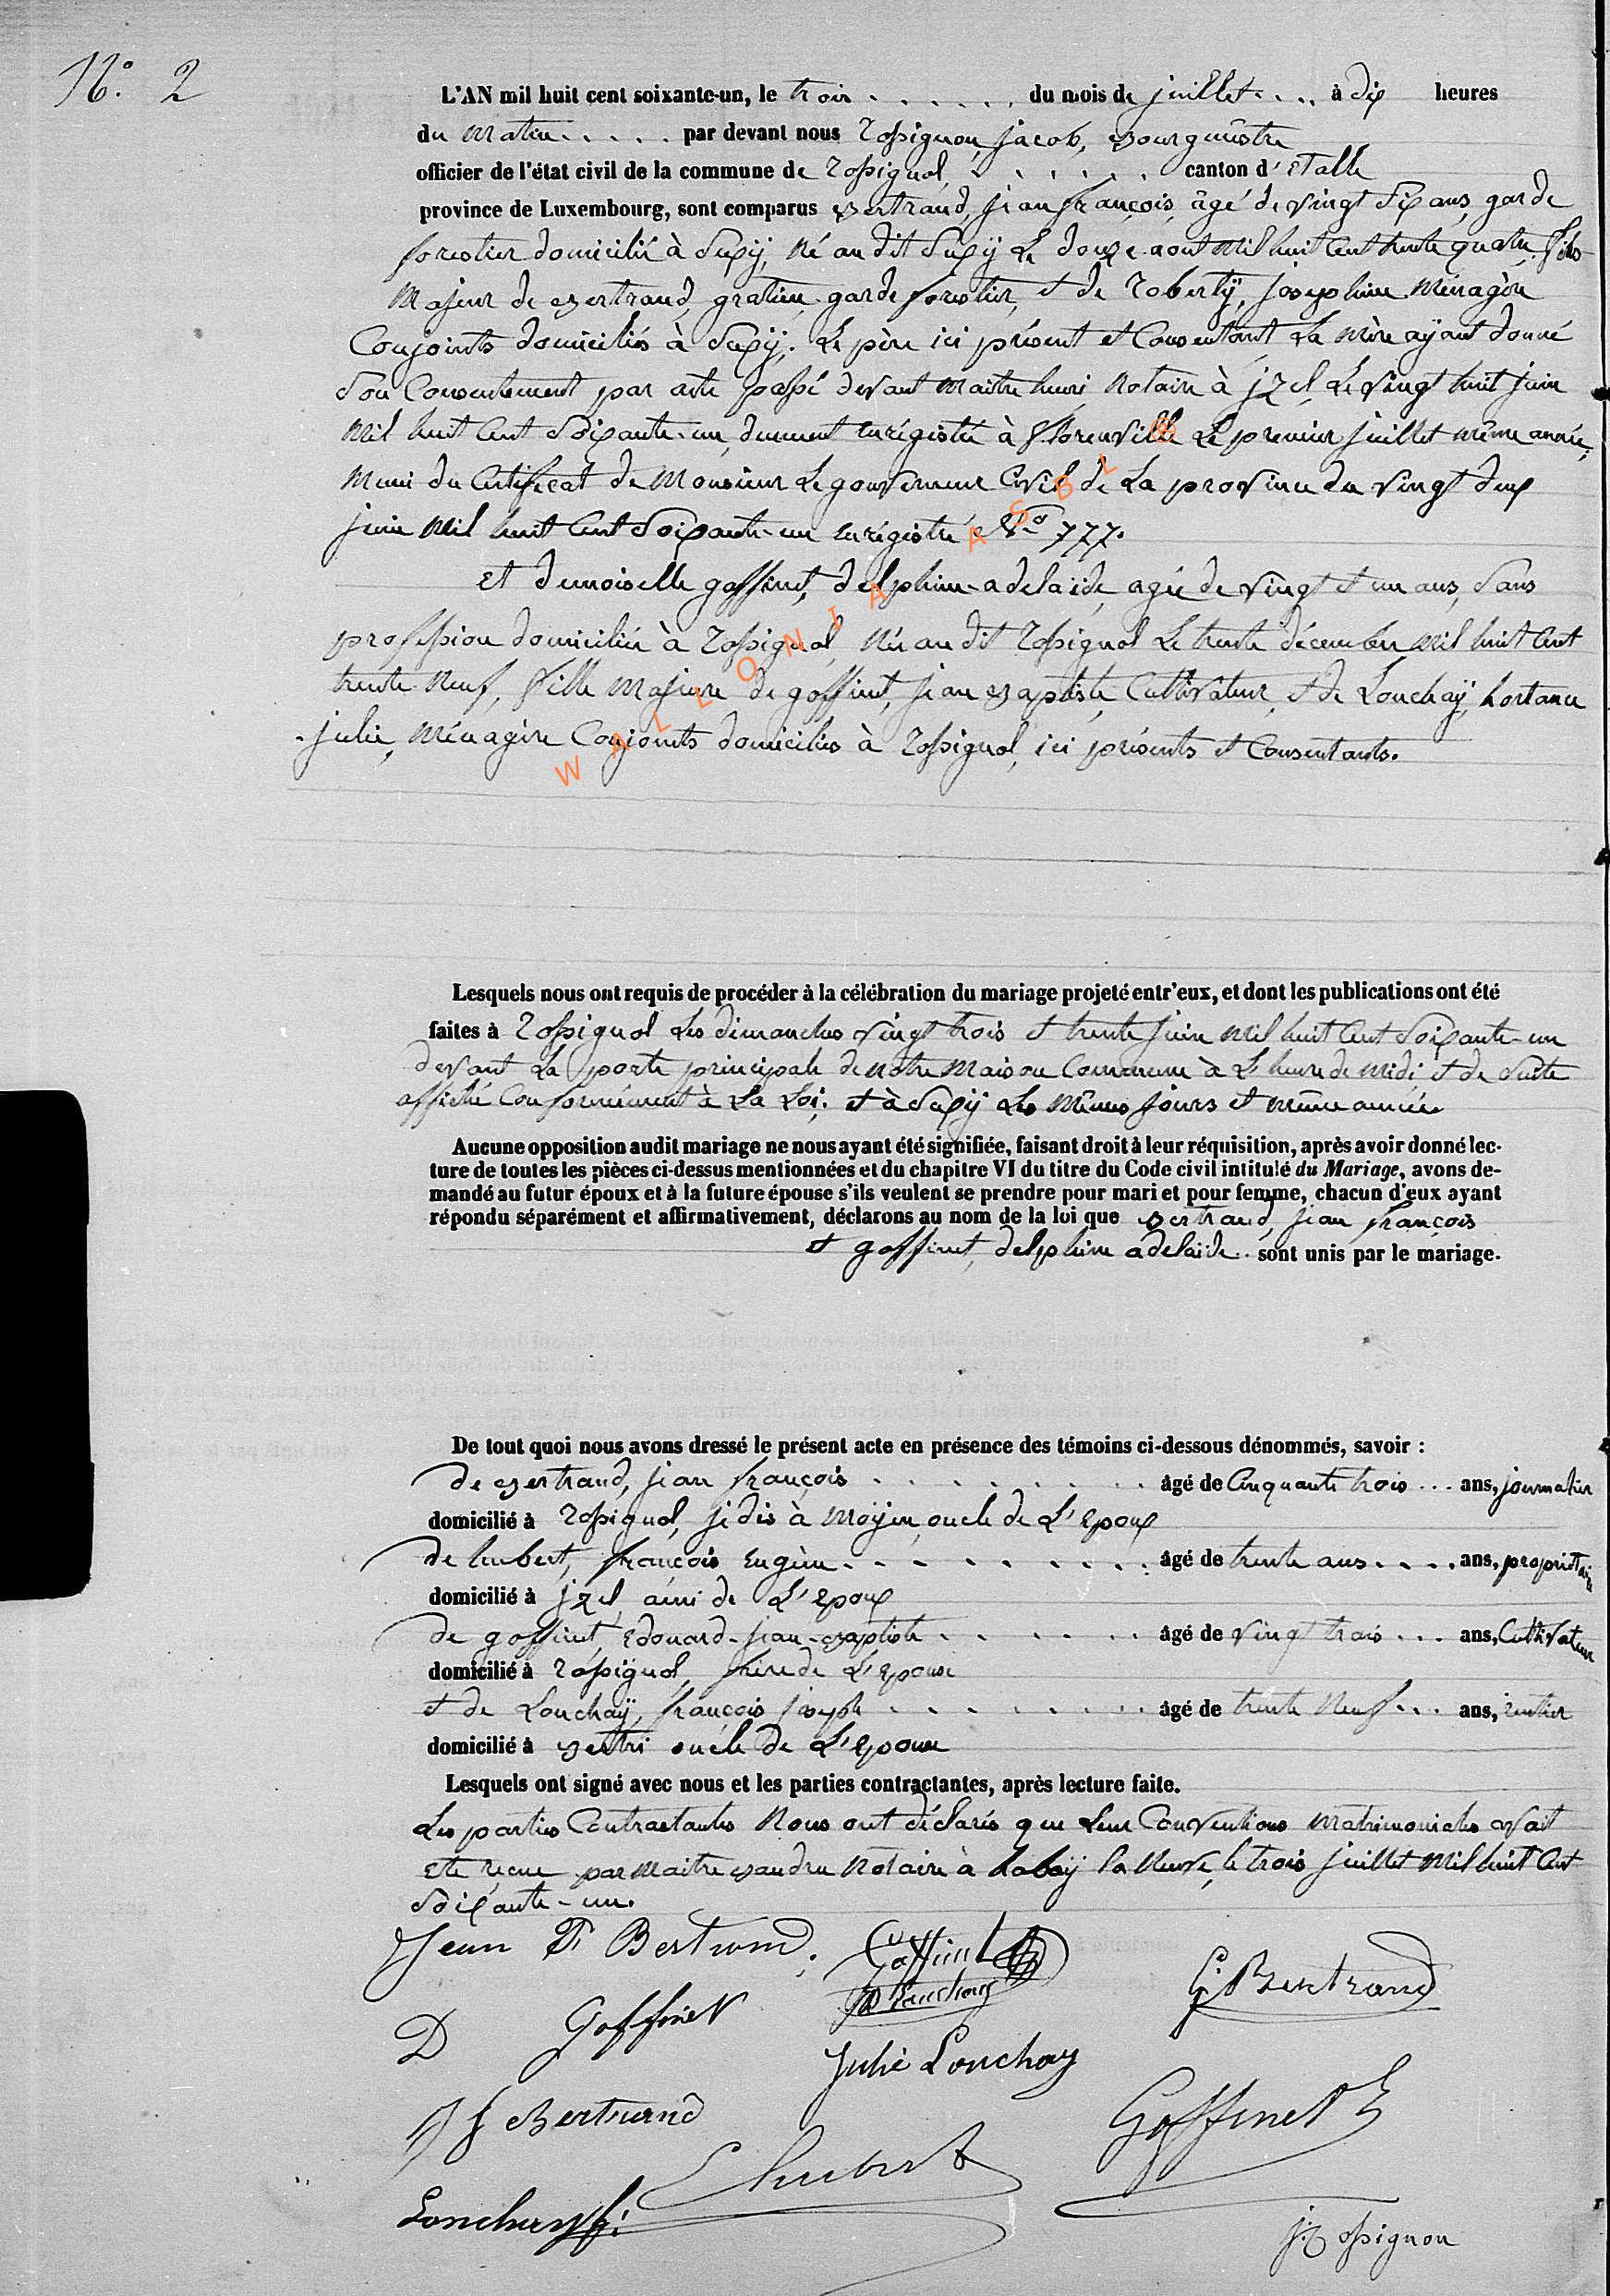 No. 2
L'AN mil huit cent soixante-un, le trois . . . . . . du mois de juillet . . . à dix heures
du matin . . . . . par devant nous Rossignon, jacob, Bourgmestre
officier de l'état civil de la commune de Rossignol, . . . . . . canton d'Etalle
province de Luxembourg, sont comparus Bertrand, jean françois, âgé de vingt six ans, garde
forestier domicilié à Suxÿ, Né au dit Suxÿ Le douze aout Mil huit Cent trente quatre, fils
Majeur de Bertrand, gratien, garde forestier, et de Robertÿ, josephine Ménagère
Conjoints domiciliés à Suxÿ, Le père ici présent et Consentant La mère aÿant donné
son Consentement par acte passé devant Maitre henri, Notaire à jzel, Le vingt huit juin
Mil huit Cent Soixante-un, dument enrégistré à florenville Le premier juillet même année,
Muni du Certificat de Monsieur Le gouverneur Civil de La province du vingt deux
juin Mil huit Cent Soixante-un enrégistré No 777.
Et demoiselle goffinet, delphine-adelaïde, agée de vingt et un ans, Sans
profession domiciliée à Rossignol, Née au dit Rossignol Le trente décembre Mil huit Cent
trente-Neuf, fille Majeure de goffinet, jean Baptiste, Cultivateur, et de Lonchaÿ, hortance
julie, Ménagère Conjoints domiciliés à Rossignol, ici présents et Consentants.
WALLONIA ASBL ®
Lesquels nous ont requis de procéder à la célébration du mariage projeté entr'eux, et dont les publications ont été
faites à Rossignol Les dimanches vingt trois et trente juin Mil huit Cent Soixante-un
devant La porte principale de Notre Maison Commune à L'heure de Midi et de Suite
affiché Conformément à La Loi; et à Suxÿ Les Mêmes jours et même année
Aucune opposition audit mariage ne nous ayant été signifiée, faisant droit à leur réquisition, après avoir donné lec-
ture de toutes les pièces ci-dessus mentionnées et du chapitre VI du titre du Code civil intitulé du Mariage, avons de-
mandé au futur époux et à la future épouse s'ils veulent se prendre pour mari et pour femme, chacun d'eux ayant
répondu séparément et affirmativement, déclarons au nom de la loi que Bertrand, jean françois
et goffinet, delphine adelaïde . sont unis par le mariage.
De tout quoi nous avons dressé le présent acte en présence des témoins ci-dessous dénommés, savoir :
de Bertrand, jean françois . . . . . . . . âgé de Cinquante trois . . . ans, journalier
domicilié à Rossignol, je dis à Moÿen, oncle de L'Epoux
de hubert, françois Eugène . . . . . . . . âgé de trente ans . . . . ans, propriétaire
domicilié à jzel, ami de L'Epoux
de goffinet, Edouard-jean-Baptiste . . . . . . âgé de vingt trois . . . ans, Cultivateur
domicilié à Rossignol, frère de L'Epouse
et de Lonchaÿ, françois joseph . . . . . . . . âgé de trente Neuf . . . ans, rentier
domicilié à Bertrix oncle de L'Epouse
Lesquels ont signé avec nous et les parties contractantes, après lecture faite.
Les parties Contractantes Nous ont déclarés que Leur Conventions Matrimoniales avait
été reçue par Maitre Notaire à habaÿ la Neuve, le trois juillet Mil huit Cent
Soixante-un.
Jean F Bertrand. Goffinet
G. Bertrand
D Goffinet
Julie Lonchay
J f Bertrand Goffinet E
E hubert
Lonchay f j
j. Rossignon